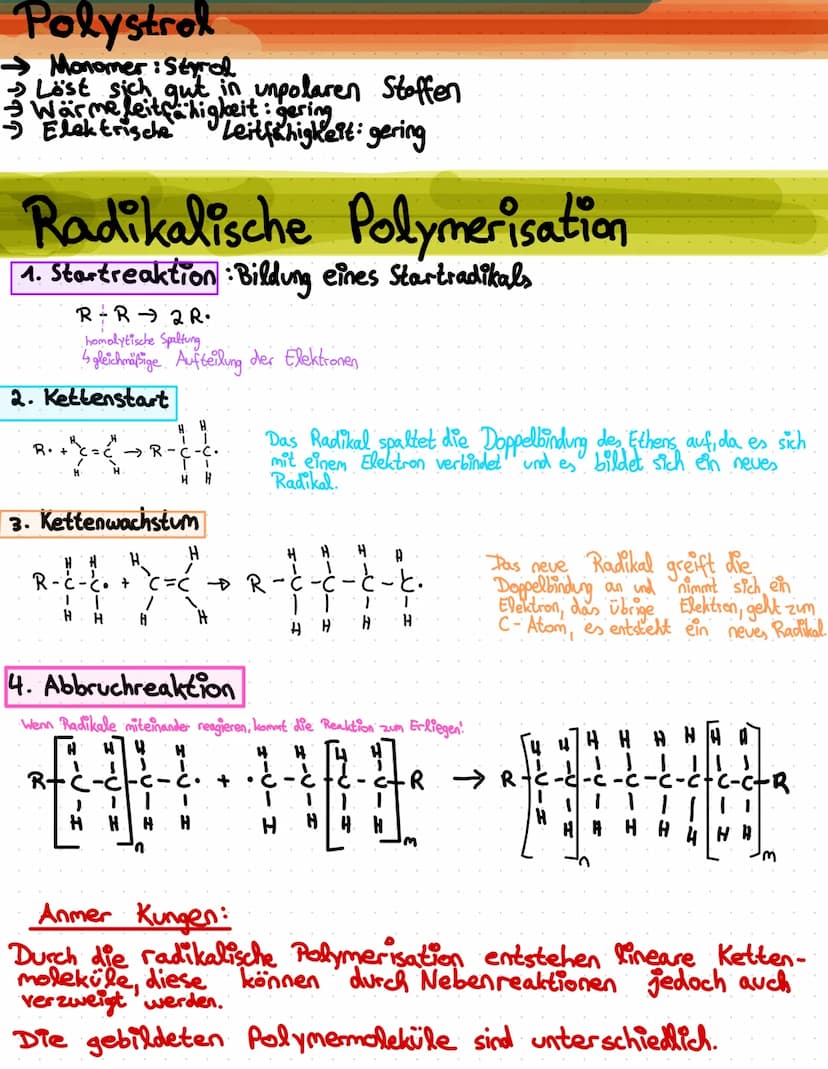 Polystrol
→ Monomer: Styrol
→ Löst sich gut in unpolaren Stoffen
→ Wärmeleitfähigkeit: gering
→ Elektrische Leitfähigkeit: gering
Radikalische Polymerisation
1. Startreaktion: Bildung eines Startradikals
R-R → 2R•
homolytische Spaltung
↳ gleichmäßige Aufteilung der Elektronen
2. Kettenstart
H H
H H H H
R• + C=C → R-C-C•
H H H H
Das Radikal spaltet die Doppelbindung des Ethens auf, da es sich
mit einem Elektron verbindet und es bildet sich ein neues
Radikal.
3. Kettenwachstum
H H H H H H H H
R-C-C• + C=C → R-C-C-C-C•
H H H H H H H H
Das neue Radikal greift die
Doppelbindung an und nimmt sich ein
Elektron, das übrige Elektron, geht zum
C-Atom, es entsteht ein neues Radikal.
4. Abbruchreaktion
Wenn Radikale miteinander reagieren, kommt die Reaktion zum Erliegen!
H H H H H H H H H H H H H H H H
R-[C-C]-C-C• + •C-C-[C-C]-R → R-[C-C]-C-C-C-C-[C-C]-R
H H H H H H H H H H H H H H H H
n m n m
Anmer Kungen:
Durch die radikalische Polymerisation entstehen lineare Ketten-
moleküle, diese können durch Nebenreaktionen jedoch auch
verzweigt werden.
Die gebildeten Polymermoleküle sind unterschiedlich.